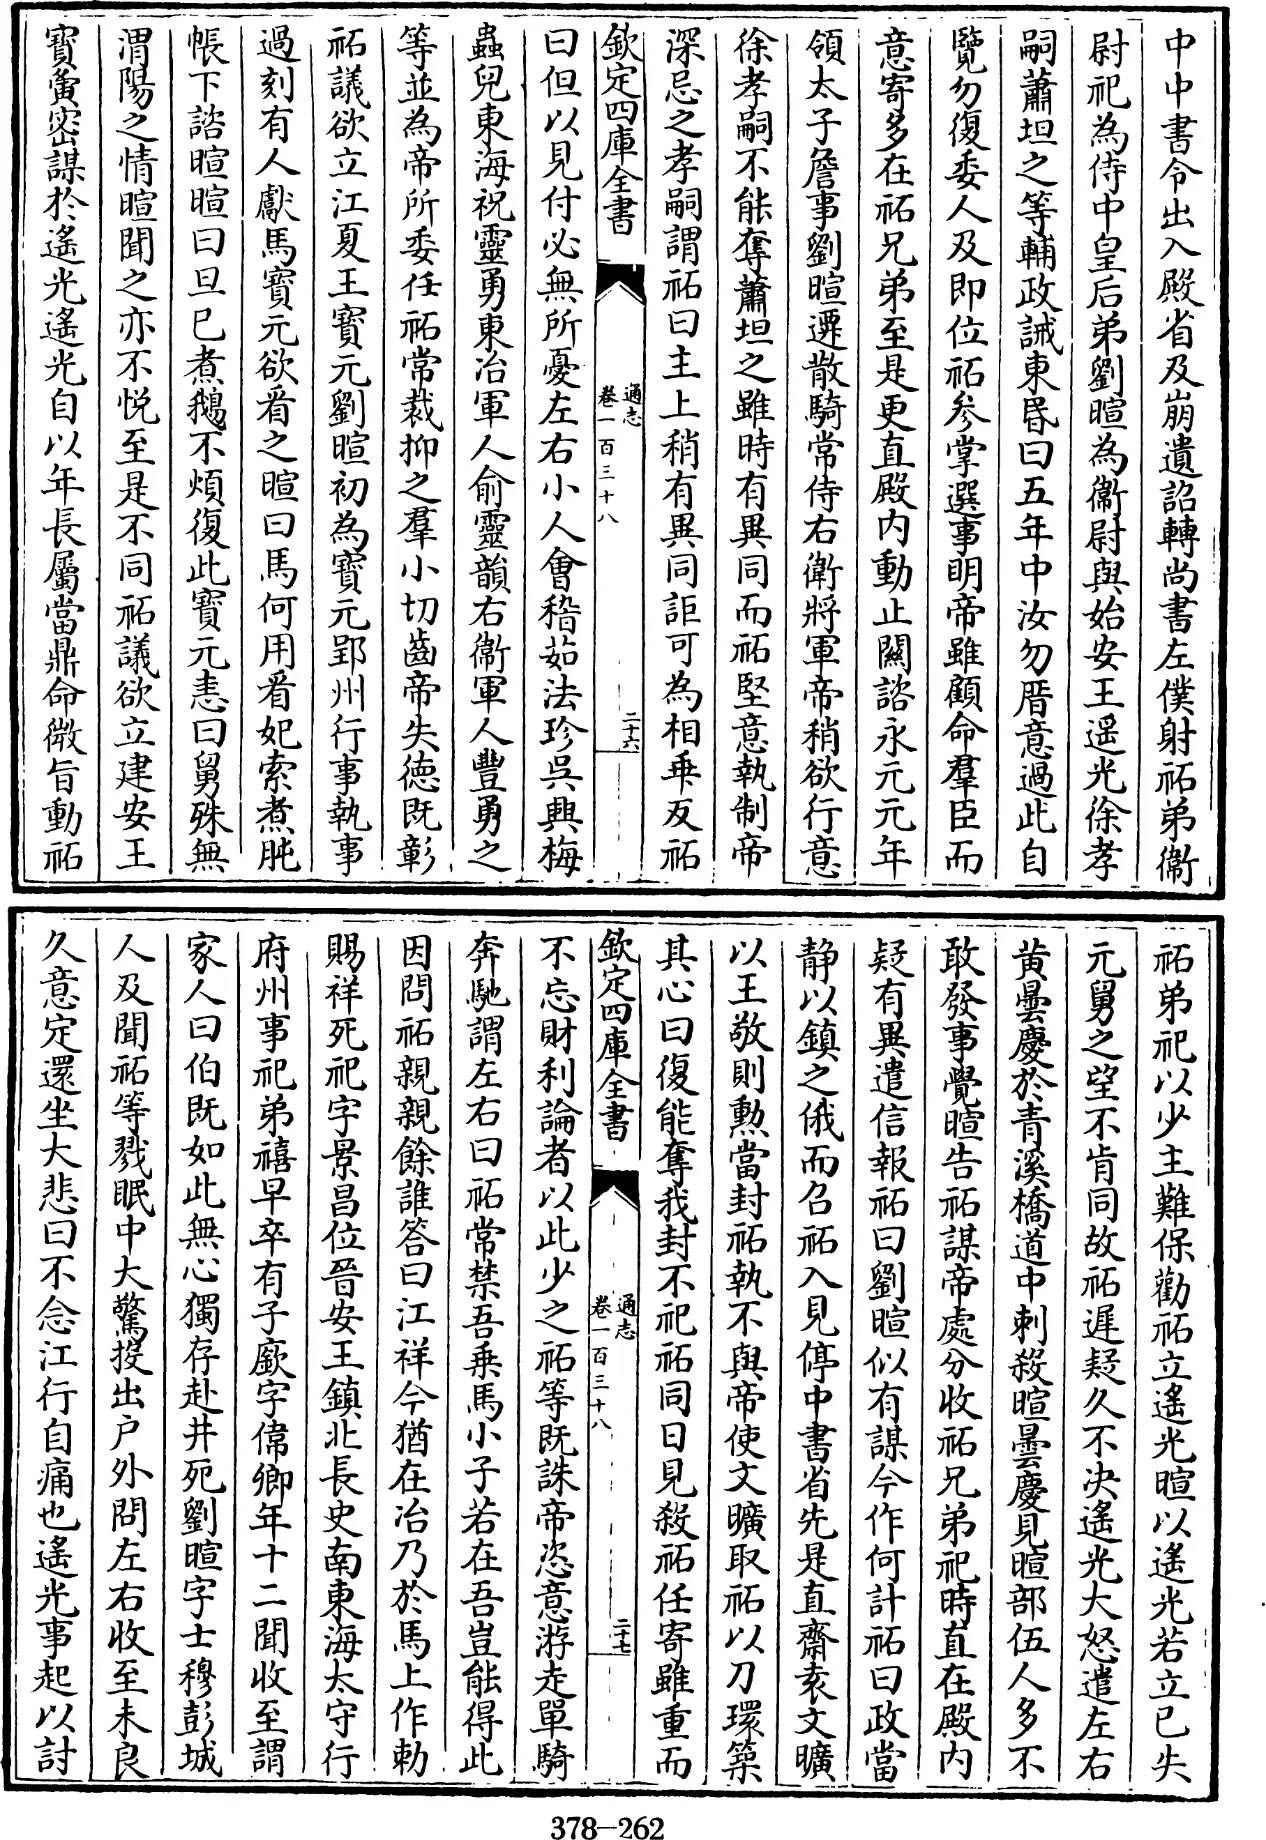 中中書令出入殿省及崩遺詔轉尚書左僕射祏弟衞
尉祀為侍中皇后弟劉暄為衞尉與始安王遥光徐孝
嗣蕭坦之等輔政誡東昏曰五年中汝勿厝意過此自
覽勿復委人及即位祏参掌選事明帝雖顧命羣臣而
意寄多在祏兄弟至是更直殿内動止關諮永元元年
領太子詹事劉暄遷散騎常侍右衛將軍帝稍欲行意
徐孝嗣不能奪蕭坦之雖時有異同而祏堅意執制帝
深忌之孝嗣謂祏曰主上稍有異同詎可為相乖反祏
欽定四庫全書
通志
卷一百三十八
二十六
曰但以見付必無所憂左右小人會稽茹法珍吳興梅
蟲兒東海祝靈勇東冶軍人俞靈韻右衞軍人豐勇之
等並為帝所委任祏常裁抑之羣小切齒帝失徳既彰
祏議欲立江夏王寳元劉暄初為寳元郢州行事執事
過刻有人獻馬寳元欲看之暄曰馬何用看妃索煮肫
帳下諮暄暄曰旦已煮鵝不煩復此寳元恚曰舅殊無
渭陽之情暄聞之亦不悦至是不同祏議欲立建安王
寳夤密謀於遙光遙光自以年長屬當鼎命微旨動祏
祏弟祀以少主難保勸祏立遙光暄以遙光若立已失
元舅之望不肯同故祏遲疑久不决遙光大怒遣左右
黄曇慶於青溪橋道中刺殺暄曇慶見暄部伍人多不
敢發事覺暄告祏謀帝處分收祏兄弟祀時直在殿内
疑有異遣信報祏曰劉暄似有謀今作何計祏曰政當
静以鎮之俄而召祏入見停中書省先是直齋袁文曠
以王敬則勲當封祏執不與帝使文曠取祏以刀環築
其心曰復能奪我封不祀祏同日見殺祏任寄雖重而
欽定四庫全書
通志
卷一百三十八
二十七
不忘財利論者以此少之祏等既誅帝恣意游走單騎
奔馳謂左右曰祏常禁吾乗馬小子若在吾豈能得此
因問祏親親餘誰答曰江祥今猶在冶乃於馬上作勅
賜祥死祀字景昌位晉安王鎮北長史南東海太守行
府州事祀弟禧早卒有子廞字偉卿年十二聞收至謂
家人曰伯既如此無心獨存赴井死劉暄字士穆彭城
人及聞祏等戮眠中大驚投出户外問左右收至未良
久意定還坐大悲曰不念江行自痛也遙光事起以討
378-262